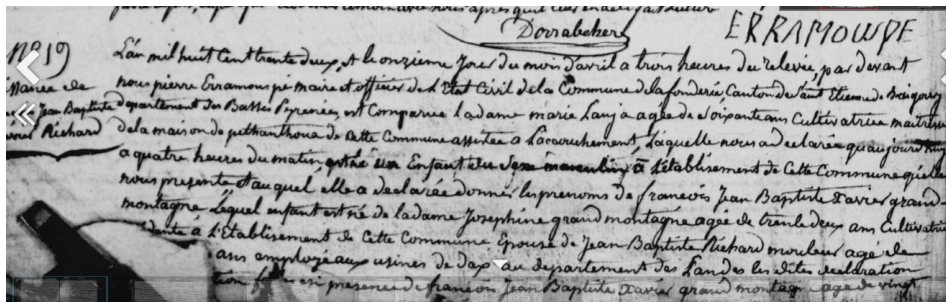 Dorrabehere
ERRAMOUPE
N° 19
L'an mil huit cent trente deux, et le onzieme jour du mois d'avril a trois heures de relevée, par devant
nous pierre Erramoupé maire et officier de l'Etat Civil de la Commune de lafonderie, Canton de saint Etienne de Baigorry
departement des Basses Pyrenées, est Comparue la dame marie Lanja agée de soixante ans Cultivatrice maitresse
de la maison de de Cette Commune assistée a L'acouchement, Laquelle nous a declarée qu'aujourd'huy
a quatre heures du matin, est né un Enfant du Sexe masculin a l'établisement de Cette Commune qu'elle
nous presente et auquel elle a declarée donner les prenoms de francois Jean Baptiste Xavier grand-
montagne, Lequel enfant est né de la dame Josephine grandmontagne agée de trente deux ans Cultivatrice
à l'Etablisement de Cette Commune, Epouse de Jean Baptiste Richard mouleur agé de
ans employé aux usines de dax au departement des Landes les dites declaration
en presence de francois Jean Baptiste Xavier grand montagne agé de vingt
Jean Baptiste
Richard